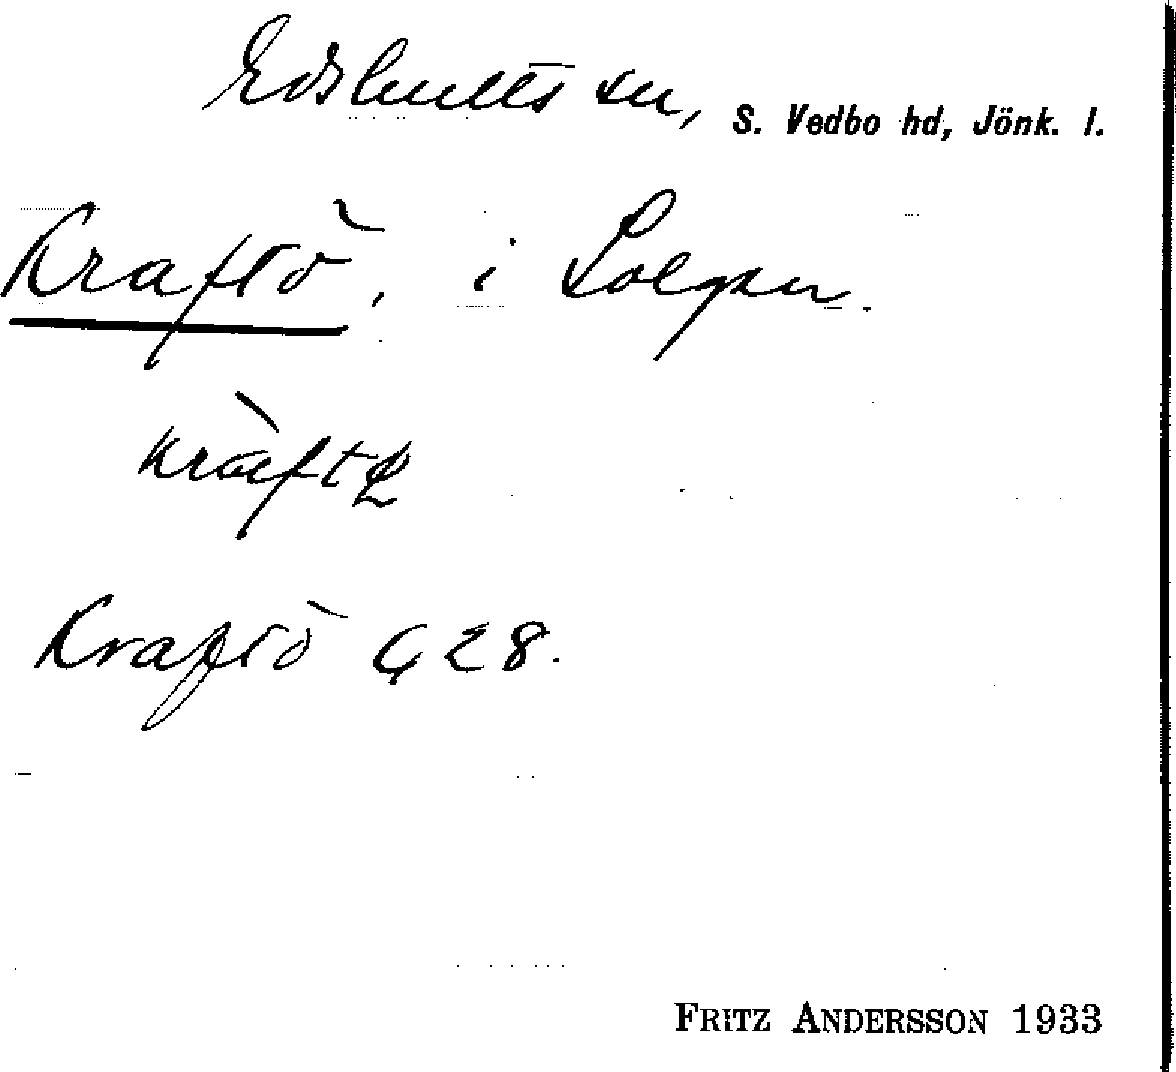 Edshults sn, S. Vedbo hd, Jönk. l.
Kraftö, i Solgen.
Kraftö G 28.
FRITZ ANDERSSON 1933